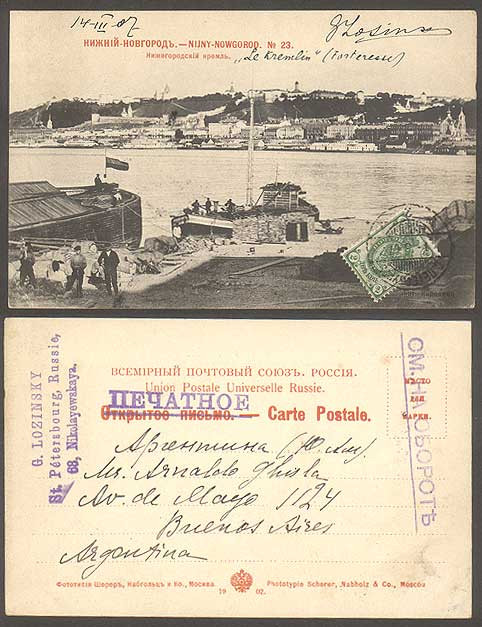 14-III-07
GLosins
НИЖНІЙ-НОВГОРОДЪ.—NIJNY-NOWGOROD. № 23.
Нижегородскій кремль. „Le Kremlin" (Forteresse)
G. LOZINSKY
St. Pétersbourg, Russie,
68, Nikolayewskaya.
ВСЕМІРНЫЙ ПОЧТОВЫЙ СОЮЗЪ. РОССІЯ.
Union Postale Universelle Russie.
ПЕЧАТНОЕ
Открытое письмо. — Carte Postale.
МѢСТО
ДЛЯ
МАРКИ.
СМ. НАОБОРОТЪ
Аргентина (Ю. Ам).
Mr. Arnaldo Ghisla
Av. de Mayo 1124
Buenos Aires
Argentina
Фототипія Шереръ, Набгольцъ и Ко., Москва.
1902.
Phototypie Scherer, Nabholz & Co., Moscou